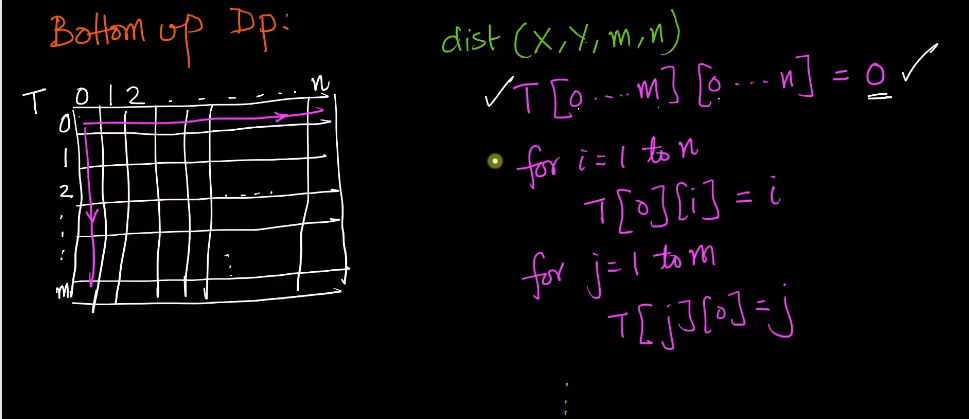 Bottom up Dp:
T 0 1 2 . - - - - . . n
0
1
2 . . - . .
:
:
m
dist (X, Y, m, n)
✓ T[0...m][0...n] = 0 ✓
for i = 1 to n
T[0][i] = i
for j = 1 to m
T[j][0] = j
⋮